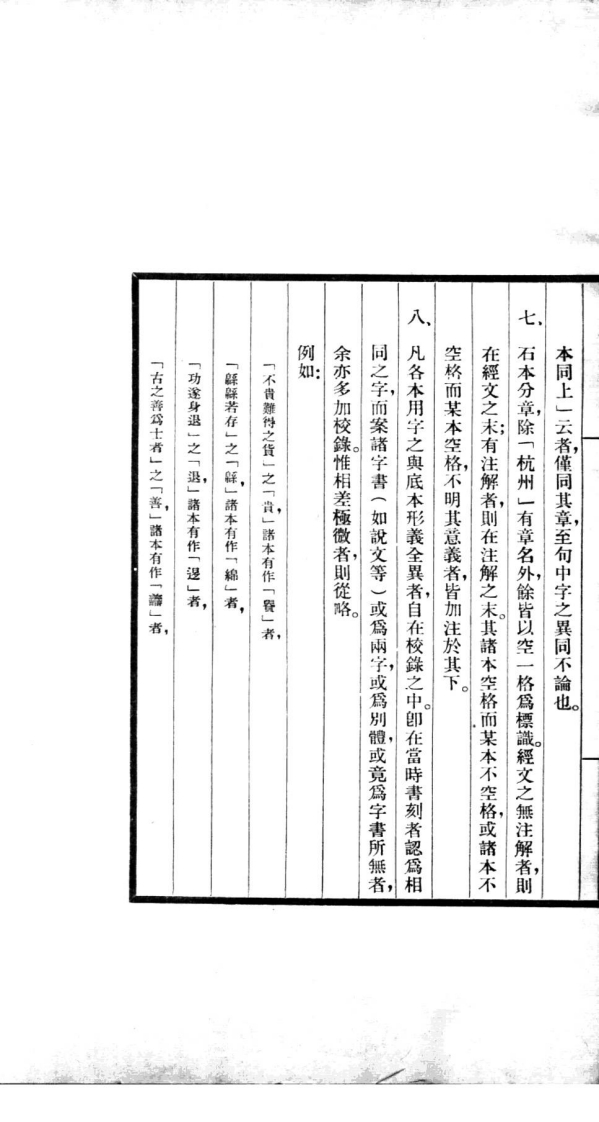 本同上」云者，僅同其章，至句中字之異同不論也。
七、石本分章，除「杭州」有章名外，餘皆以空一格爲標識。經文之無注解者，則
在經文之末；有注解者，則在注解之末。其諸本空格而某本不空格，或諸本不
空格而某本空格，不明其意義者，皆加注於其下。
八、凡各本用字之與底本形義全異者，自在校錄之中。卽在當時書刻者認爲相
同之字，而案諸字書（如說文等）或爲兩字，或爲別體，或竟爲字書所無者，
余亦多加校錄。惟相差極微者，則從略。
例如：
「不貴難得之貨」之「貴」諸本有作「」者，
「緜緜若存」之「緜」諸本有作「綿」者，
「功遂身退」之「退」諸本有作「」者，
「古之善爲士者」之「善」諸本有作「譱」者，